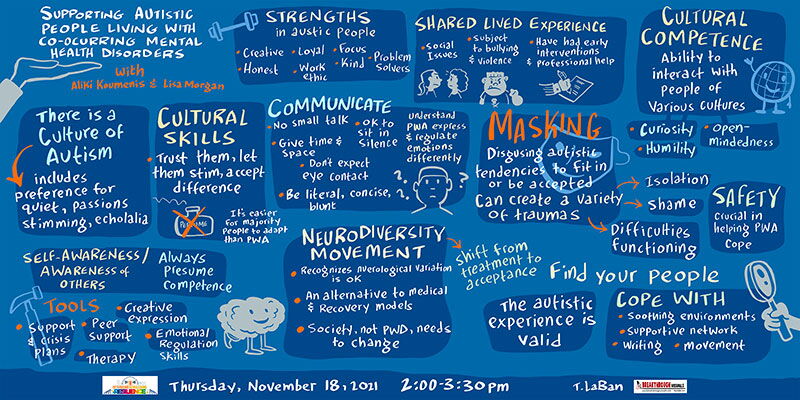 SUPPORTING AUTISTIC
PEOPLE LIVING WITH
CO-OCURRING MENTAL
HEALTH DISORDERS
with
ALIKI KOUMENIS & LISA MORGAN
STRENGTHS
in austic people
• Creative
• Loyal
• Focus
• Honest
• Work
ethic
• Kind
• Problem
Solvers
SHARED LIVED EXPERIENCE
• Social
Issues
• Subject
to bullying
& violence
• Have had early
interventions
& professional help
CULTURAL
COMPETENCE
Ability to
interact with
people of
various cultures
• Curiosity
• Open-
mindedness
• Humility
There is a
Culture of
Autism
includes
preference for
quiet, passions
stimming, echolalia
CULTURAL
SKILLS
Trust them, let
them stim, accept
difference
PERFUME
It's easier
for majority
people to adapt
than PWA
COMMUNICATE
• No small talk
• OK to
sit in
Silence
• Give time &
Space
• Don't expect
eye contact
• Be literal, concise,
blunt
Understand
PWA express
& regulate
emotions
differently
? ? ?
MASKING
Disgusing autistic
tendencies to fit in
or be accepted
Can create a variety
of traumas
Isolation
Shame
Difficulties
functioning
SAFETY
crucial in
helping PWA
Cope
SELF-AWARENESS/
AWARENESS of
OTHERS
Always
Presume
Competence
TOOLS
• Support
& crisis
plans
• Peer
Support
• Creative
expression
• Therapy
• Emotional
Regulation
Skills
NEURODIVERSITY
MOVEMENT
• Recognizes nuerological variation
is OK
• An alternative to medical
& Recovery models
• Society, not PWD, needs
to change
Shift from
treatment to
acceptance
Find your people
The autistic
experience is
valid
COPE WITH
• Soothing environments
• Supportive network
• Writing
• movement
RESILIENCE
Thursday, November 18, 2021
2:00-3:30 pm
T. LaBan
BREAKTHROUGH VISUALS